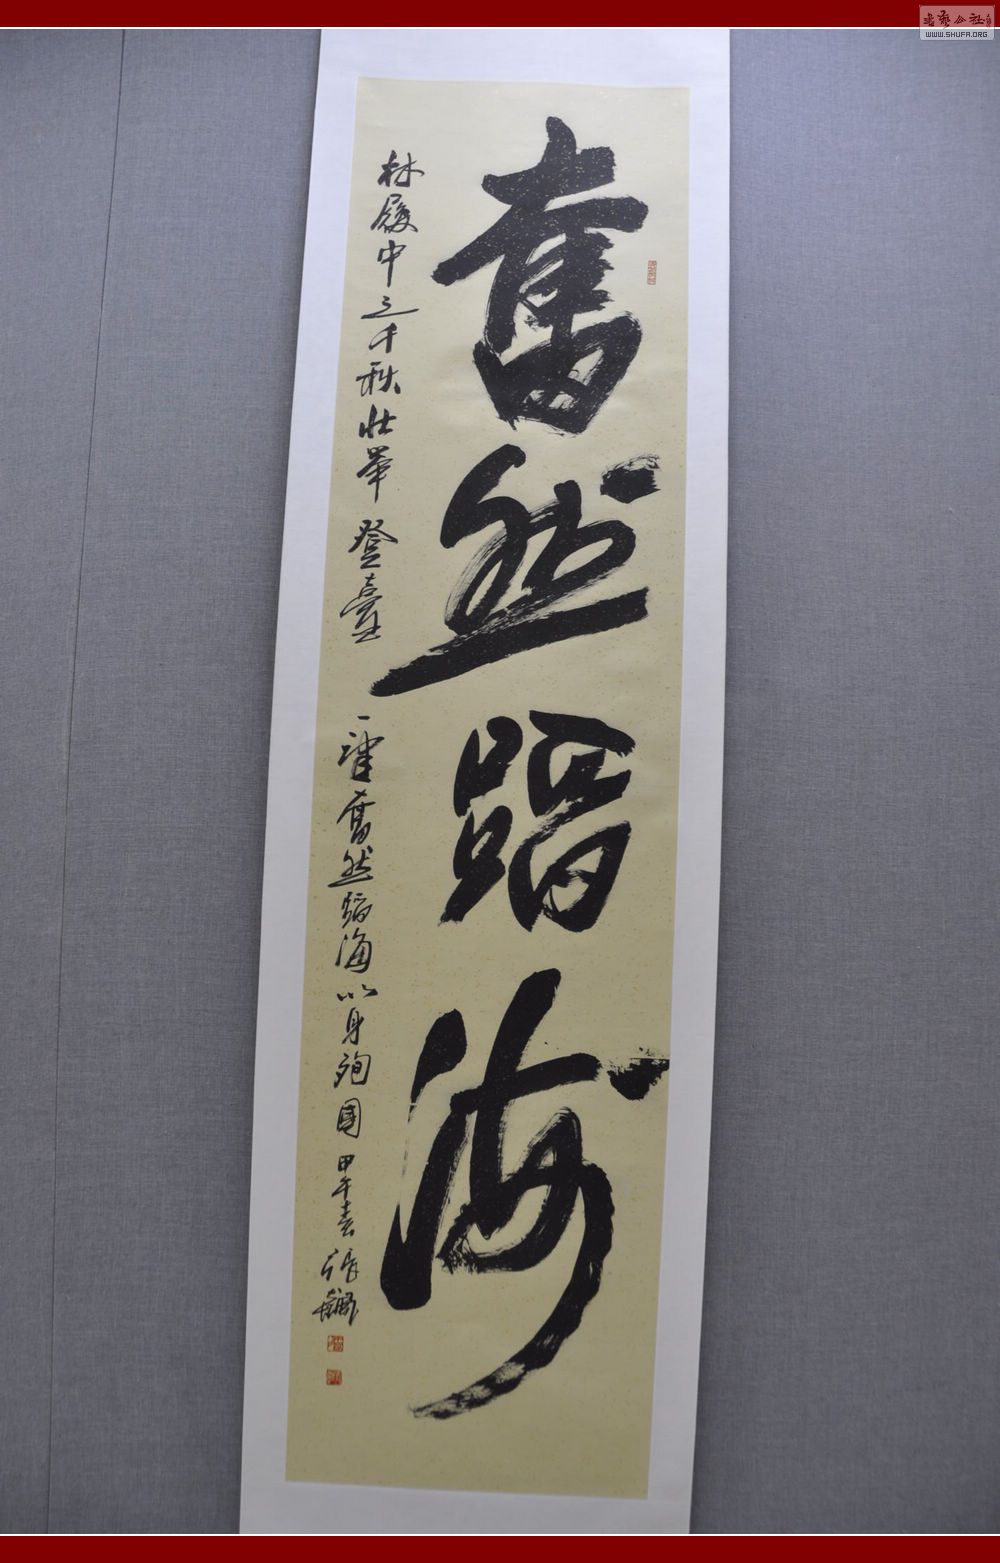 奮然蹈海
林履中之千秋壮举 登臺一望奮然蹈海以身殉国 甲午春 張
书艺公社
WWW.SHUFA.ORG